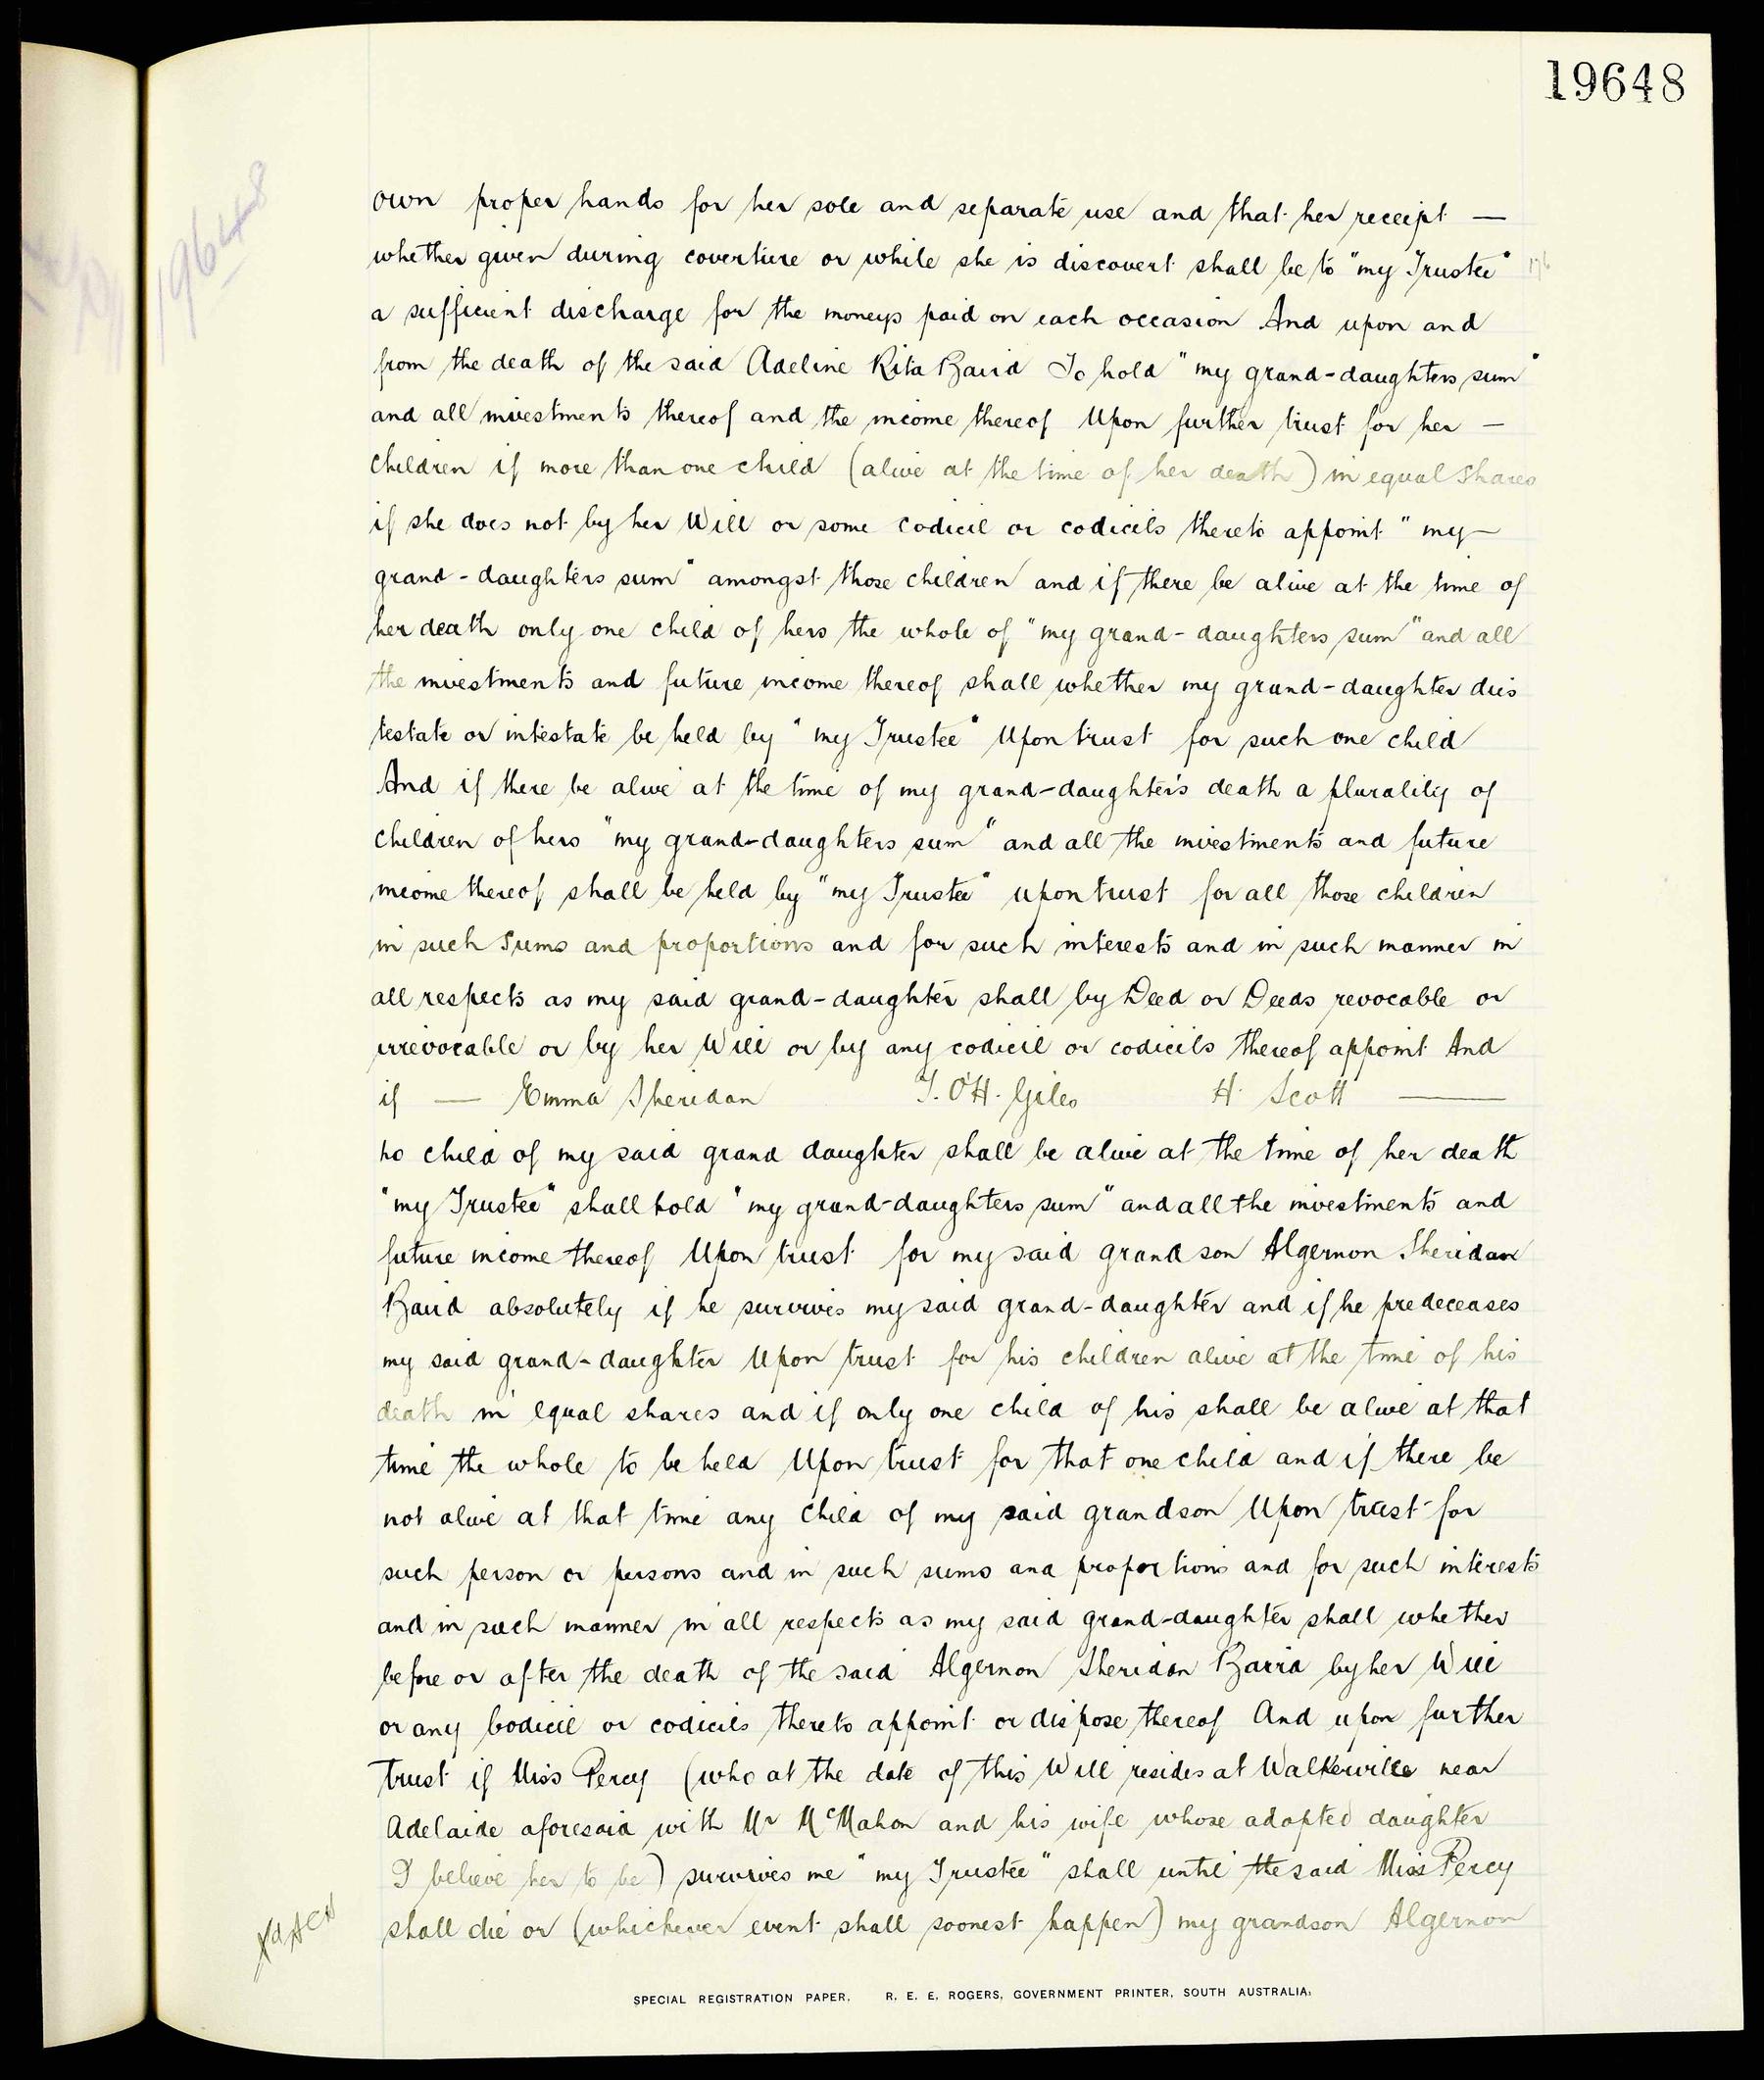 19648
19648
own proper hands for her sole and separate use and that her receipt —
whether given during coverture or while she is discovert shall be to "my Trustee"
a sufficient discharge for the moneys paid on each occasion And upon and
from the death of the said Adeline Rita Baird To hold "my grand-daughters sum"
and all investments thereof and the income thereof Upon further trust for her —
children if more than one child (alive at the time of her death) in equal shares
if she does not by her Will or some codicil or codicils thereto appoint "my —
grand-daughters sum" amongst those children and if there be alive at the time of
her death only one child of hers the whole of "my grand-daughters sum" and all
the investments and future income thereof shall whether my grand-daughter dies
testate or intestate be held by "my Trustee" Upon trust for such one child
And if there be alive at the time of my grand-daughter's death a plurality of
children of hers "my grand-daughters sum" and all the investments and future
income thereof shall be held by "my Trustee" upon trust for all those children
in such sums and proportions and for such interests and in such manner in
all respects as my said grand-daughter shall by Deed or Deeds revocable or
irrevocable or by her Will or by any codicil or codicils thereof appoint And
if — Emma Sheridan T. O'H. Giles H. Scott —
no child of my said grand daughter shall be alive at the time of her death
"my Trustee" shall hold "my grand-daughters sum" and all the investments and
future income thereof Upon trust for my said grand son Algernon Sheridan
Baird absolutely if he survives my said grand-daughter and if he predeceases
my said grand-daughter Upon trust for his children alive at the time of his
death in equal shares and if only one child of his shall be alive at that
time the whole to be held Upon trust for that one child and if there be
not alive at that time any child of my said grandson Upon trust for
such person or persons and in such sums and proportions and for such interests
and in such manner in all respects as my said grand-daughter shall whether
before or after the death of the said Algernon Sheridan Baird by her Will
or any codicil or codicils thereto appoint or dispose thereof And upon further
trust if Miss Percy (who at the date of this Will resides at Walkerville near
Adelaide aforesaid with Mr McMahon and his wife whose adopted daughter
I believe her to be) survives me "my Trustee" shall until the said Miss Percy
shall die or (whichever event shall soonest happen) my grandson Algernon
SPECIAL REGISTRATION PAPER. R. E. E. ROGERS, GOVERNMENT PRINTER, SOUTH AUSTRALIA.